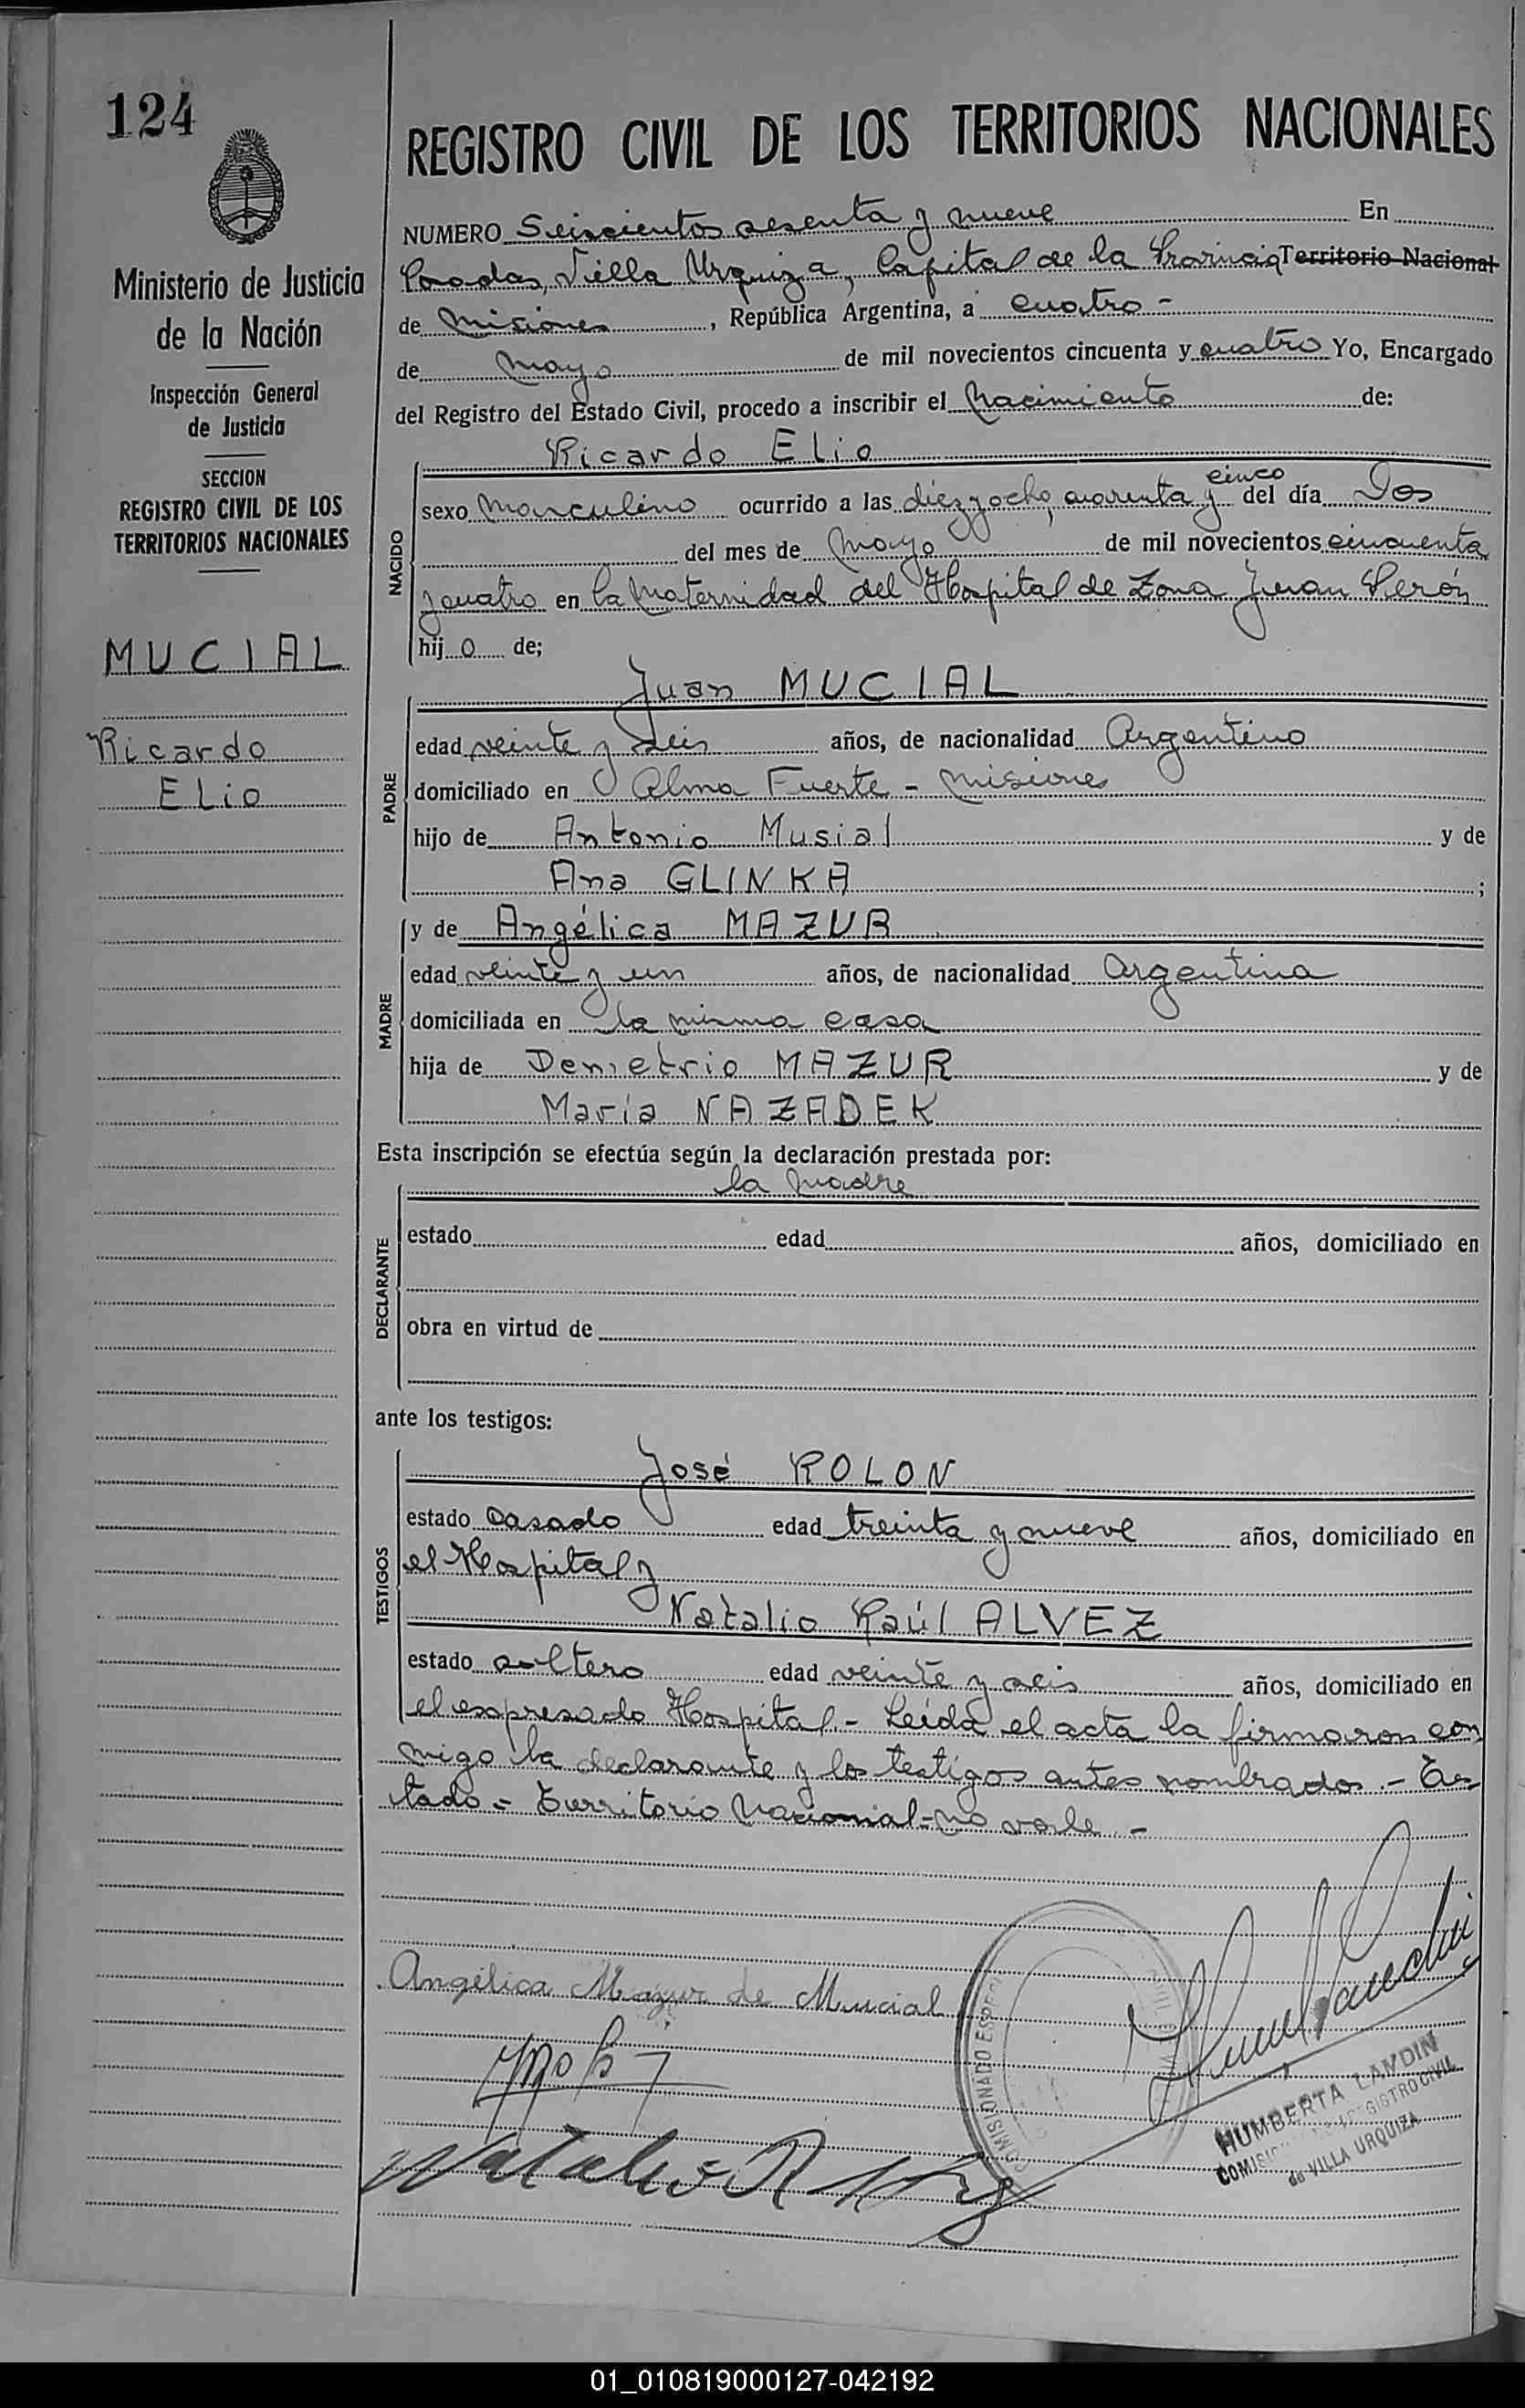 124
REGISTRO CIVIL DE LOS TERRITORIOS NACIONALES
Ministerio de Justicia
de la Nación
Inspección General
de Justicia
SECCION
REGISTRO CIVIL DE LOS
TERRITORIOS NACIONALES
MUCIAL
Ricardo
Elio
NUMERO Seiscientos sesenta y nueve En
Posadas, Villa Urquiza, Capital de la Provincia Territorio Nacional
de Misiones, República Argentina, a cuatro -
de Mayo de mil novecientos cincuenta y cuatro Yo, Encargado
del Registro del Estado Civil, procedo a inscribir el Nacimiento de:
Ricardo Elio
NACIDO
sexo Masculino ocurrido a las diez y ocho, cuarenta y cinco del día Dos
del mes de Mayo de mil novecientos cincuenta
y cuatro en la Maternidad del Hospital de Zona Juan Perón
hijo de;
PADRE
Juan MUCIAL
edad veinte y seis años, de nacionalidad Argentino
domiciliado en Alma Fuerte - Misiones
hijo de Antonio Musial y de
Ana GLINKA;
MADRE
y de Angélica MAZUR
edad veinte y un años, de nacionalidad Argentina
domiciliada en la misma casa
hija de Demetrio MAZUR y de
María NAZADEK
Esta inscripción se efectúa según la declaración prestada por:
la Madre
DECLARANTE
estado edad años, domiciliado en
obra en virtud de
ante los testigos:
TESTIGOS
José ROLON
estado casado edad treinta y nueve años, domiciliado en
el Hospital y
Natalio Raúl ALVEZ
estado soltero edad veinte y seis años, domiciliado en
el expresado Hospital.- Leída el acta la firmaron con
migo la declarante y los testigos antes nombrados.- Tes
tado - Territorio Nacional - no vale.-
Angélica Mazur de Mucial
COMISIONADO
HUMBERTA LANDIN
REGISTRO CIVIL
de VILLA URQUIZA
01_010819000127-042192